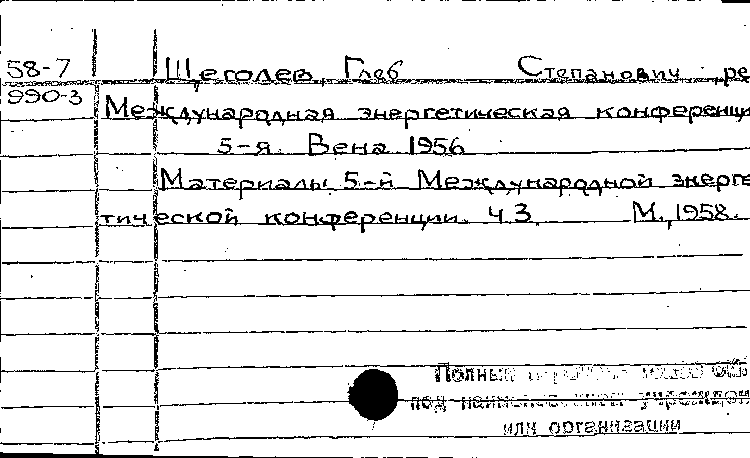 58-7 Щеголев, Глеб Степанович ре
990-3 Международная энергетическая конференци
5-я. Вена 1956
Материалы 5-й Международной энерге
тической конференции. Ч.3. М., 1958.
Полный
под учрежден
или организации